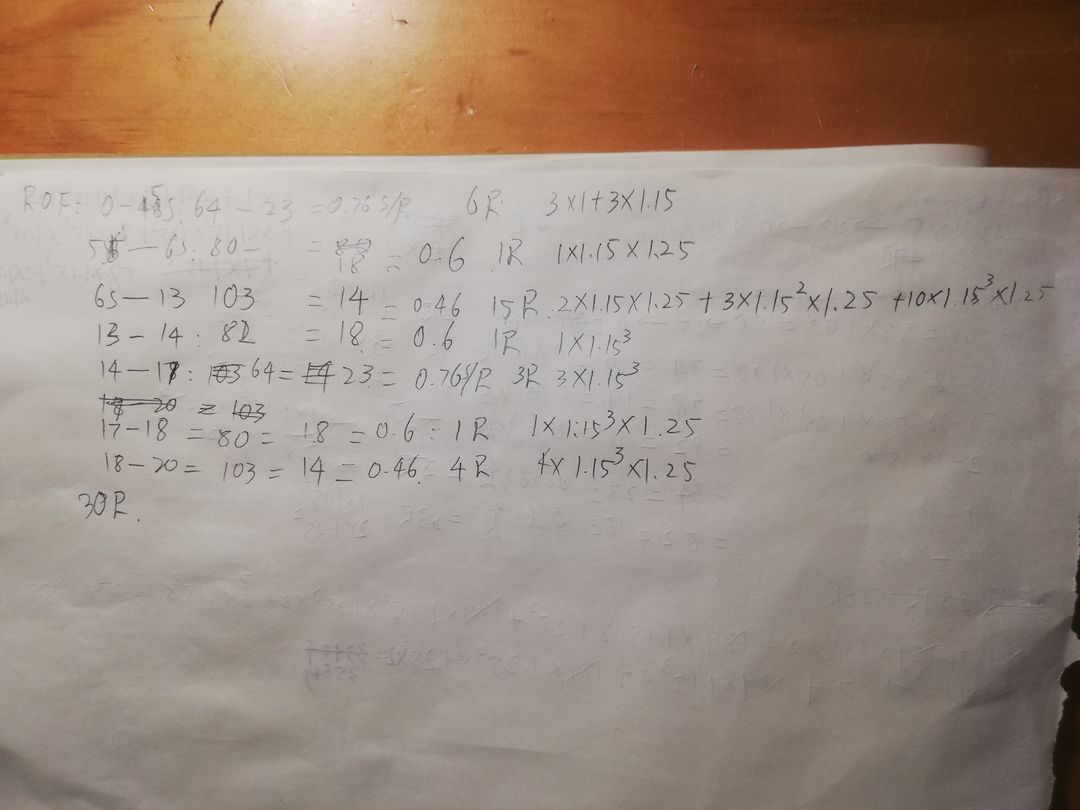 ROF: 0-5s: 64-23 =0.76 S/R 6R 3×1+3×1.15
5-6s: 80- = 18 = 0.6 1R 1×1.15×1.25
6s-13 103 = 14 = 0.46 15R. 2×1.15×1.25 + 3×1.15²×1.25 +10×1.15³×1.25
13-14: 82 = 18 = 0.6 1R 1×1.15³
14-17: 64= 23= 0.76S/R 3R 3×1.15³
18-20 = 103
17-18 = 80= 18 =0.6: 1R 1×1.15³×1.25
18-20= 103=14=0.46. 4R 4×1.15³×1.25
30R.